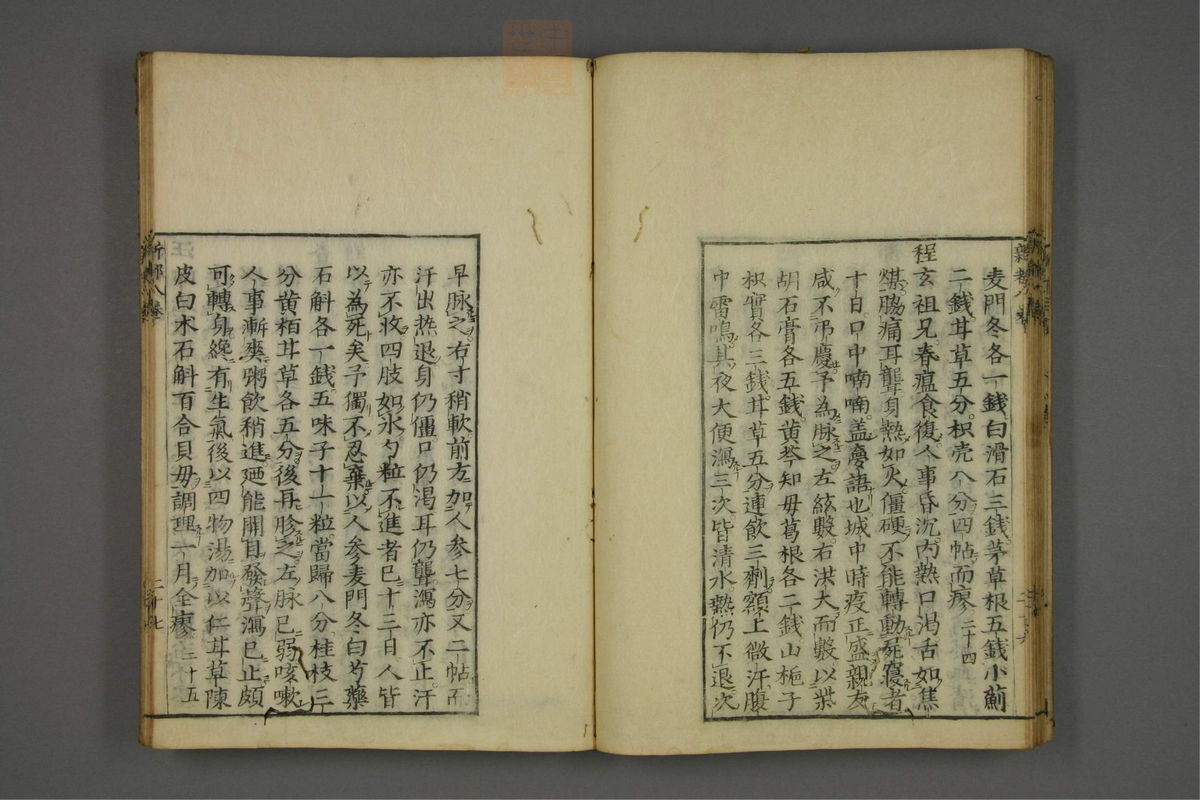 麦門冬各一錢白滑石三錢茅草根五錢小薊
二錢甘草五分枳壳八分四帖而瘳二十四
程玄祖兄春瘟食復人事昏沉内熱口渴舌如焦
煤脇痛耳聾身熱如火僵硬不能轉動死寢者
十日口中喃喃盖讝語也城中時疫正盛親友
咸不弔慶予為脉之左絃數右洪大而數以柴
胡石膏各五錢黄芩知母葛根各二錢山梔子
枳實各三錢甘草五分連飲三劑額上微汗腹
中雷鳴其夜大便瀉三次皆清水熱仍不退次
早脉之右寸稍軟前方加人参七分又二帖而
汗出热退身仍僵口仍渴耳仍聾瀉亦不止汗
亦不收四肢如氷勺粒不進者已十三日人皆
以為死矣予獨不忍棄以人参麦門冬白芍藥
石斛各一錢五味子十一粒當歸八分桂枝三
分黄栢甘草各五分後再胗之左脉已弱咳嗽
人事漸爽粥飲稍進廼能開目發聲瀉已止頗
可轉身纔有生氣後以四物湯加以仁甘草陳
皮白术石斛百合貝母調理一月全瘳二十五
二十七